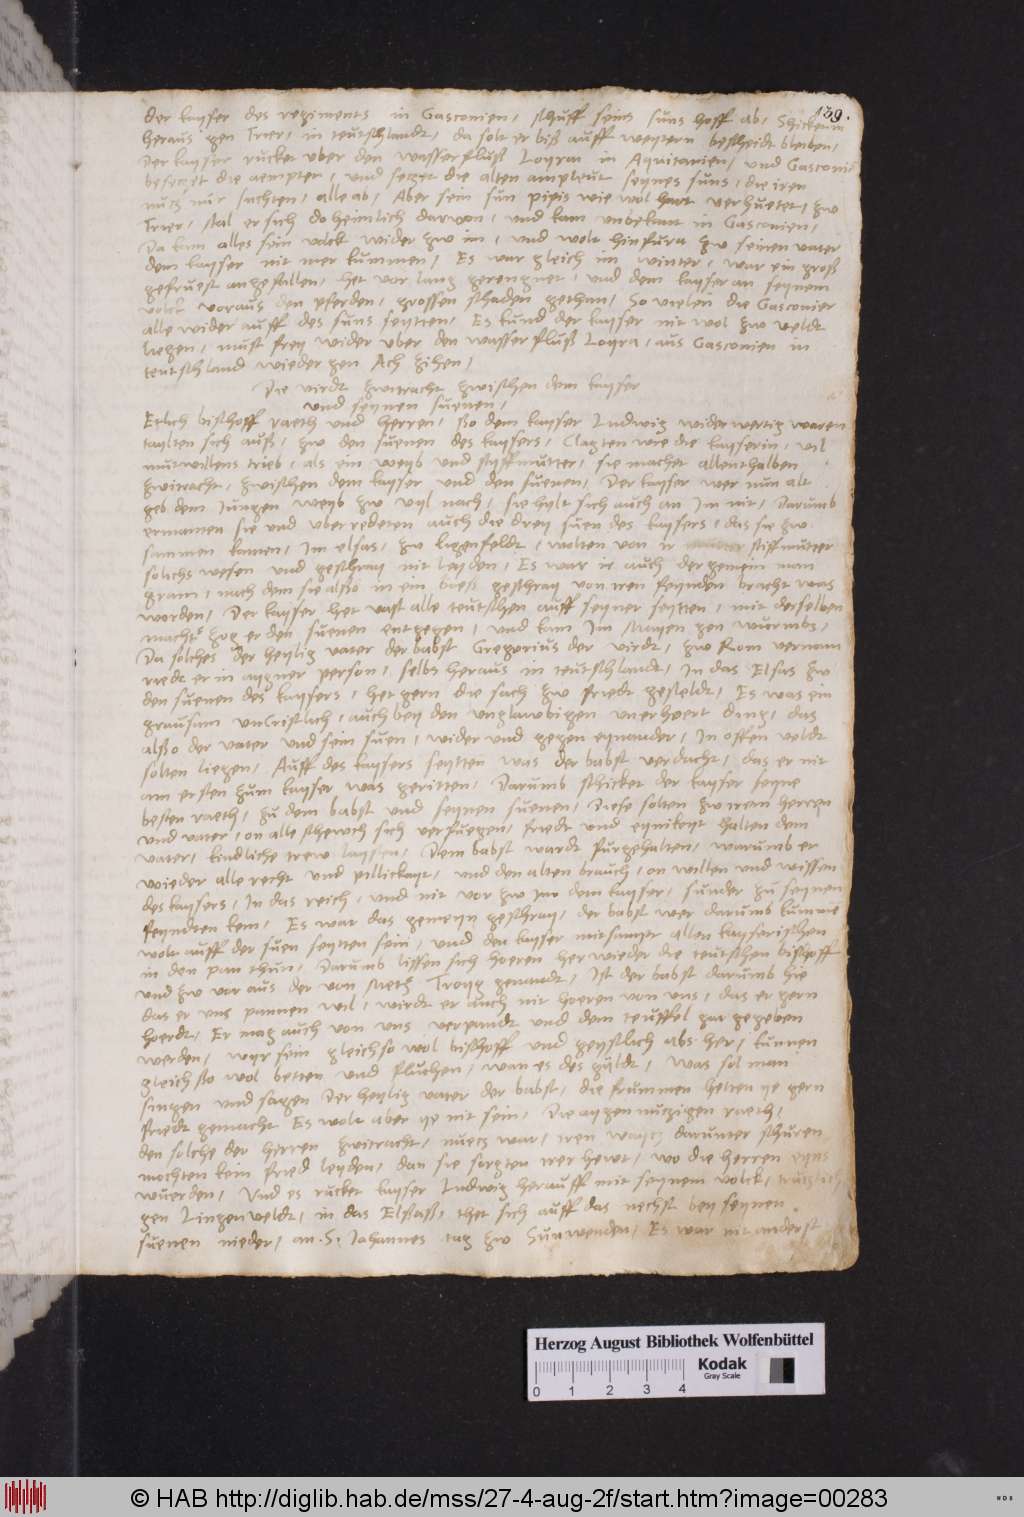 139.
der kayser des regiments in Gasconien, schuff seins suns hoff ab, Shicket in
heraus gen Trier, in teutschlandt, da solt er biß auff weytern bescheidt bleiben,
Der kayser rucket vber den wasserfluß Loyra in Aquitanien, und Gasconie
besetzet die aempter, und setzet die alten ampleut seynes suns, die iren
nutz nur suchten, alle ab, Aber sein sun pipis wie wol hart verhuetet, zw
Trier, stal er sich do heimlich darvon, und kam unbekant in Gasconien,
Da kam alles sein volck wider zw im, und wolt hinfura zw seinen vater
dem kayser nit mer kummen, Es war gleich im winter, war ein groß
gefruest angefallen, het vor lang gerengnet, und dem kayser an seynem
volck voraus den pferden, grossen schaden gethan, So vielen die Gasconier
alle wider auff des suns seytten, Es kund der kayser nit wol zw veldt
liegen, must frey wider vber den wasserfluß Loyra, aus Gasconien in
teutschland wieder gen Ach zihen,
Die virdt zwitracht zwischen dem kayser
und seynen suenen,
Etlich bischoff raeth und herren, so dem kayser Ludwig widerwertig waren
taylten sich auß, zw den suenen des kaysers, Clagten wie die kayserin, vil
mutwillens trieb, als ein weyb und styffmutter, sie machet allenthalben
zwitracht, zwischen dem kayser und den suenen, Der kayser wer nun alt
geb dem Jungen weyb zw vyl nach, sie hylt sich auch an Im nit, Darumb
ermanten sie und vberredeten auch die drey suen des kaysers, das sie zw
sammen kamen, Im elsas, zw ligenfeldt, wolten von ir stiffmutter
solichs wesen und geschray nit leyden, Es war ir auch der gemein man
gram, nach dem sie alßo in ein boeß geschray von iren feynden bracht was
worden, Der kayser het vast alle teutschen auff seyner seytten, mit derselben
macht zog er den suenen entgegen, und kam Im Mayen gen wurmbs,
Da solches der heylig vater der babst Gregorius der virdt, zw Rom vernam
riedt er in aygner person, selbs heraus in teutschlandt, In das Elsas zw
den suenen des kaysers, het gern die sach zw friedt gesteldt, Es was ein
grausam vnCristlich, auch bey den unglawbigen unerhoert ding, das
alßo der vater und sein suen, wider und gegen eynander, In offen veldt
solten liegen, Auff des kaysers seytten was der babst verdacht, das er nit
am ersten zum kayser was geritten, Darumb schicket der kayser seyne
besten raeth, zu dem babst und seynen suenen, Diese solten zw irem herren
und vater, on alle schewch sich verfuegen, friedt und eynikeyt halten dem
vater, kindliche trew laysten, Dem babst wardt furgehalten, warumb er
wieder alle recht und pillickayt, und den alten brauch, on willen und wissen
des kaysers, In das reich, und nit vor zw im dem kayser, sunder zu seynen
feyndten kem, Es war das gemeyn geschray, der babst wer darumb kumme
wolt auff der suen seytten sein, und den kayser mitsampt allen kayserischen
in den pan thun, Darumb liessen sich hoeren herwieder die teutschen bischoff
und zw voraus der von Metz Trogg genandt, Ist der babst darumb hie
das er uns pannen wil, wirdt er auch nit hoeren von uns, das er gern
hoerdt, Er mag auch von uns verpandt und dem teuffel gar gegeben
werden, wyr sein gleich so wol bischoff und geystlich abs her, kunnen
gleich so wol betten und fluchen, wan es des gyldt, Was sol man
singen und sagen Der heylig vater der babst, die frummen hetten ye gern
friedt gemacht Es wolt aber ye nit sein, Die aygennutzigen raeth,
den solche der herren zwitracht, nuecz war, iren waycz darunter schuren
mochten kein fried leyden, dan sie sorgten irer hewt, wo die herren eyns
wuerden, Und es rucket kayser Ludwig herauff mit seynem volck, trutzlich
gen Lingenveldt, in das Elsaß, thet sich auff das nechst bey seynen
suenen nieder, an S. Johannes tag zw Sunwenden, Es war nit anderst
Herzog August Bibliothek Wolfenbüttel
Kodak
Gray Scale
0 1 2 3 4
© HAB http://diglib.hab.de/mss/27-4-aug-2f/start.htm?image=00283